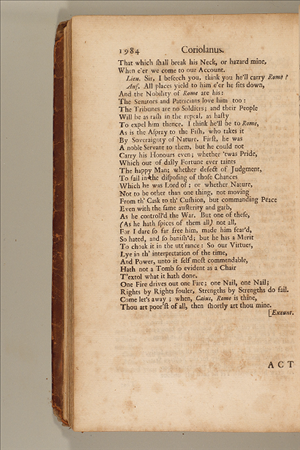 1984 Coriolanus.
That which shall break his Neck, or hazard mine,
When e'er we come to our Account.
Lieu. Sir, I beseech you, think you he'll carry Rome?
Auf. All places yield to him e'er he sits down,
And the Nobility of Rome are his:
The Senators and Patricians love him too:
The Tribunes are no Soldiers; and their People
Will be as rash in the repeal, as hasty
To expel him thence. I think he'll be to Rome,
As is the Aspray to the Fish, who takes it
By Soveraignty of Nature. First, he was
A noble Servant to them, but he could not
Carry his Honours even; whether 'twas Pride,
Which out of daily Fortune ever taints
The happy Man; whether defect of Judgment,
To fail in the disposing of those Chances
Which he was Lord of; or whether Nature,
Not to be other than one thing, not moving
From th' Cask to th' Cushion, but commanding Peace
Even with the same austerity and garb,
As he controll'd the War. But one of these,
(As he hath spices of them all) not all,
For I dare so far free him, made him fear'd,
So hated, and so banish'd; but he has a Merit
To choak it in the utt'rance: So our Virtues,
Lye in th' interpretation of the time,
And Power, unto it self most commendable,
Hath not a Tomb so evident as a Chair
T'extol what it hath done.
One Fire drives out one Fire; one Nail, one Nail;
Rights by Rights fouler, Strengths by Strengths do fail.
Come let's away; when, Caius, Rome is thine,
Thou art poor'st of all, then shortly art thou mine.
[Exeunt.
ACT